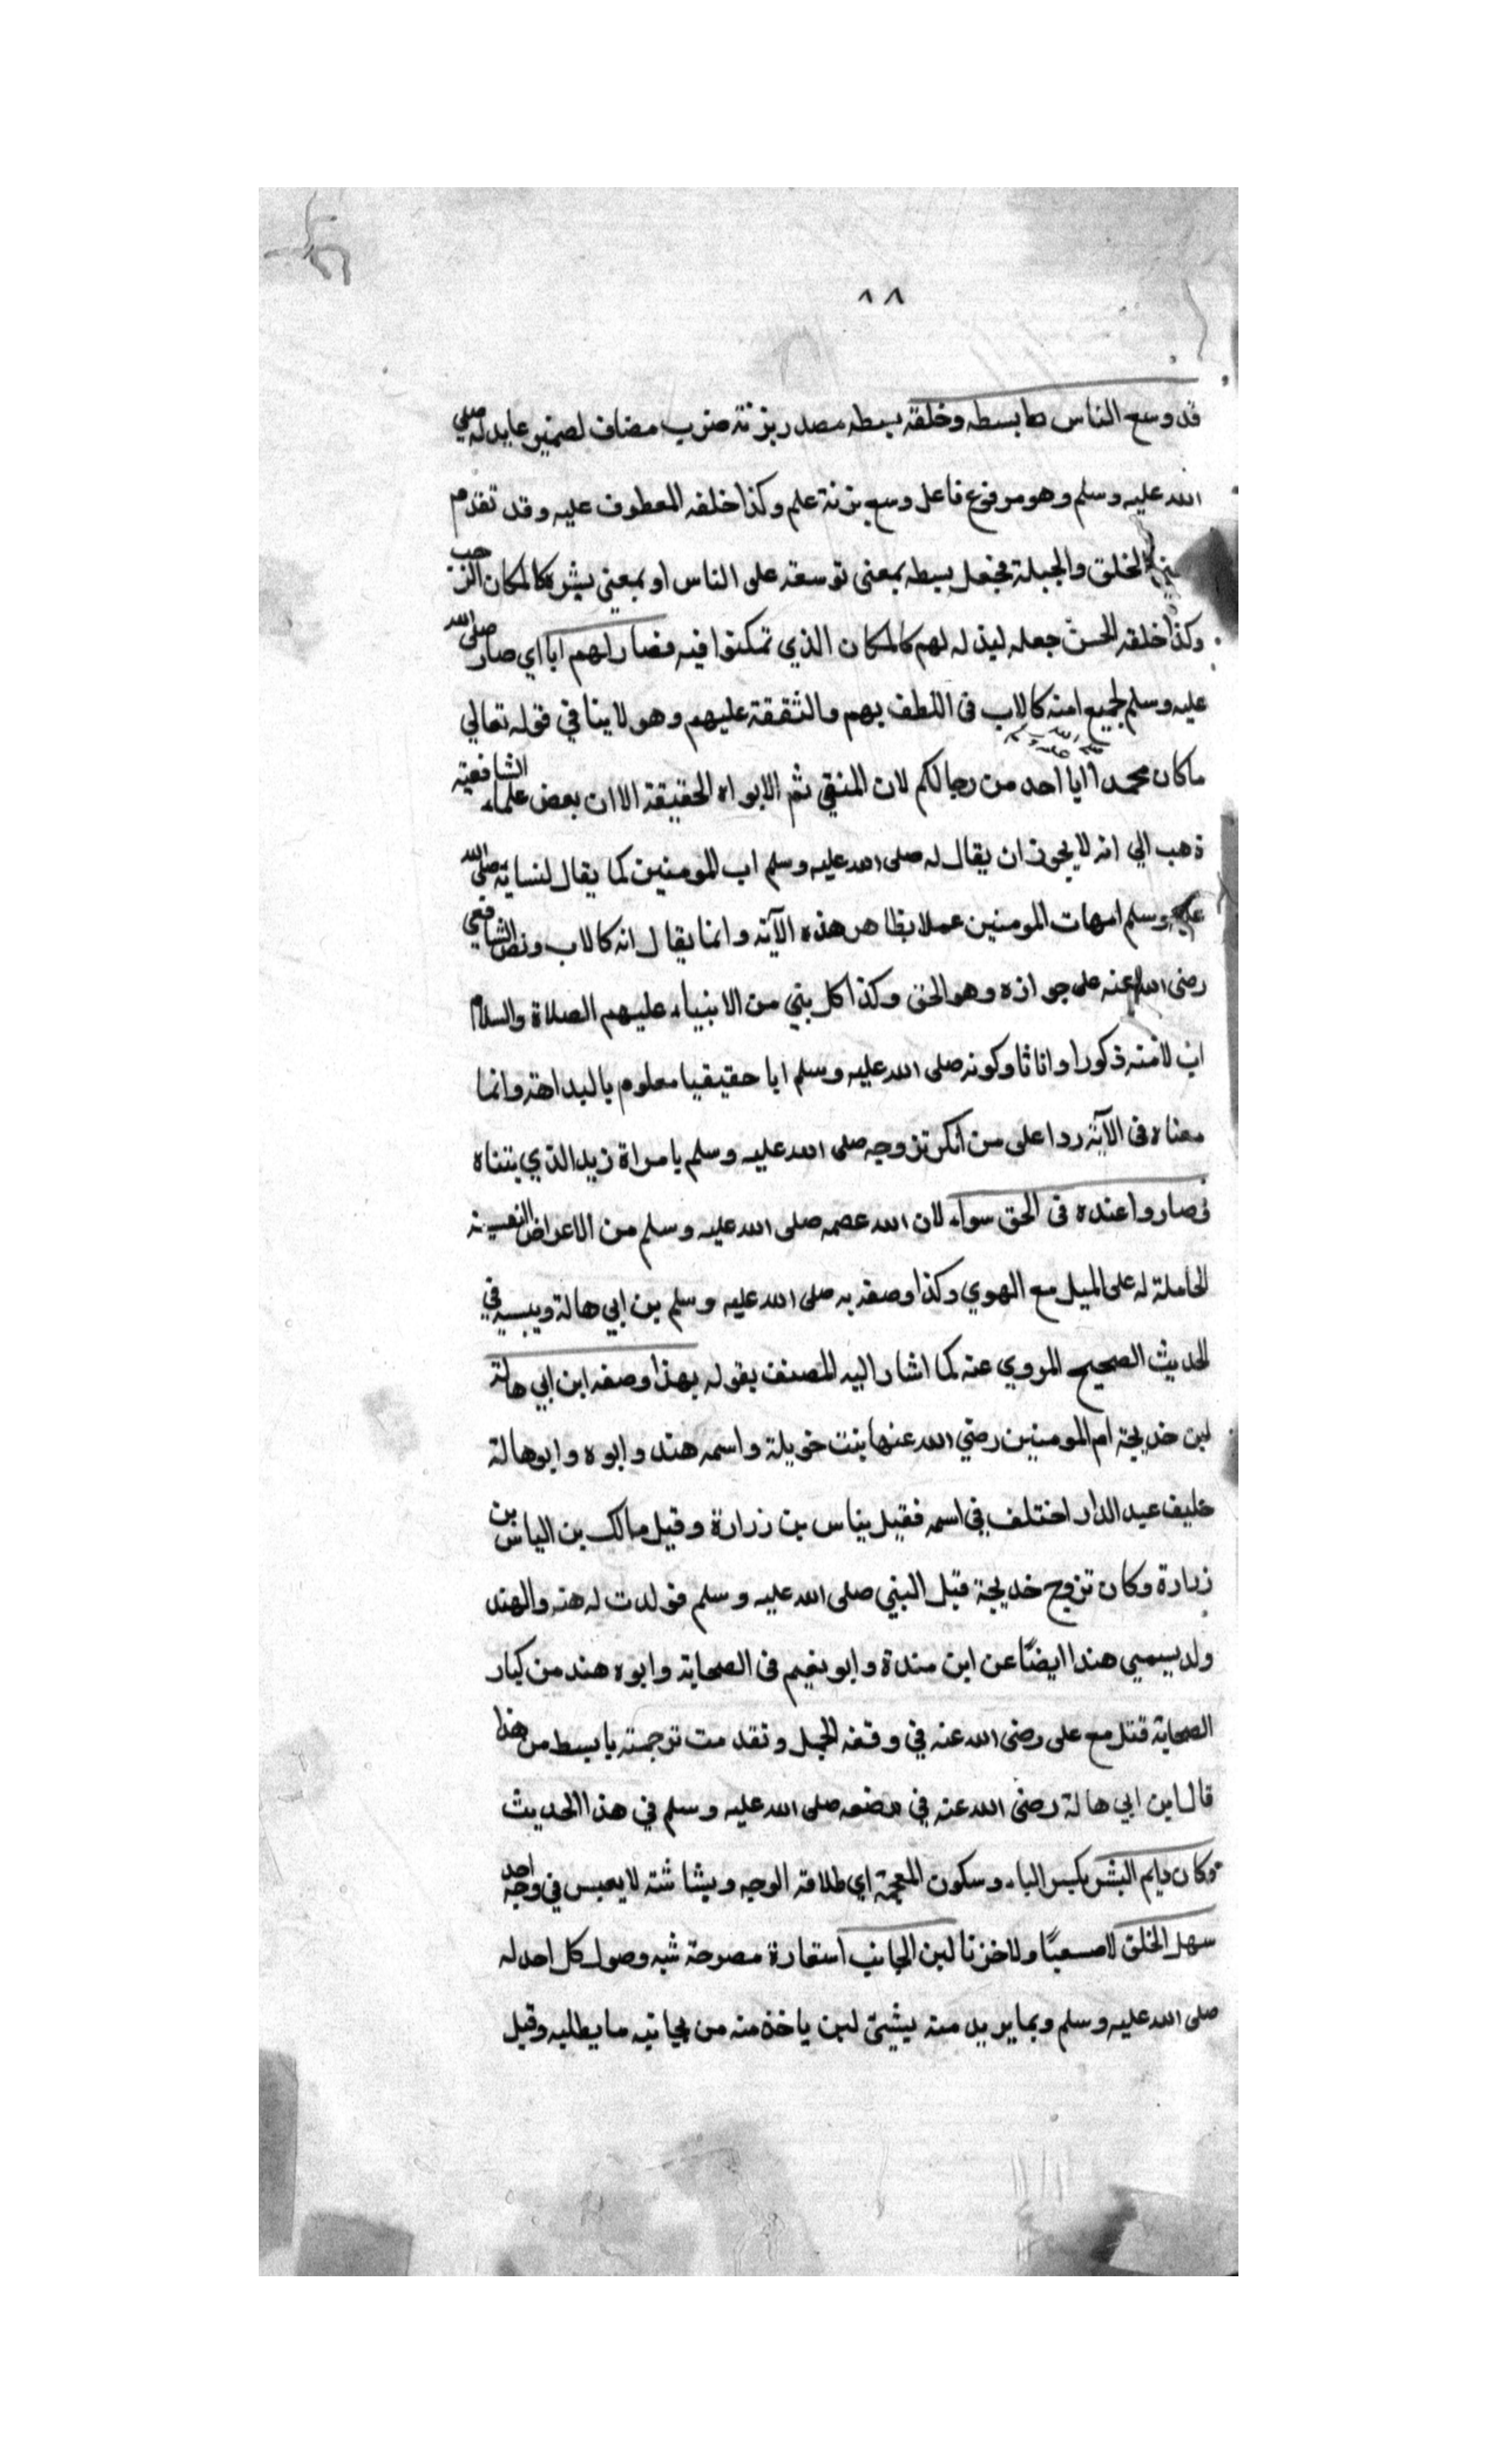 ٨٨
قد وسع الناس بسطه وخلقه بسطه مصدر بزنة ضرب مضاف لضمير عايد له صلى
الله عليه وسلم وهو مرفوع فاعل وسع بزنة علم وكذا خلقه المعطوف عليه وقد تقدم
الخلق والجبلة فجعل بسطه بمعنى توسعته على الناس او بمعنى بشره كالمكان الرحب
وكذا خلقه الحسن جعله لبذله لهم كالمكان الذي تمكنوا فيه فصار لهم ابا اي صار صلى الله
عليه وسلم لجميع امته كالاب فى اللطف بهم والشفقة عليهم وهو لا ينافي قوله تعالي
ما كان محمد ابا احد من رجالكم لان المنفي ثم الابواه الحقيقة الا ان بعض علماء الشافعية
ذهب الي انه لا يجوز ان يقال له صلى الله عليه وسلم اب المومنين كما يقال لنسايه صلى الله
عليه وسلم امهات المومنين عملا بظاهر هذه الآية وانما يقال انه كالاب ونص الشافعي
رضى الله عنه على جوازه وهو الحق وكذا كل نبي من الانبياء عليهم الصلاة والسلام
اب لامته ذكورا واناثا وكونه صلى الله عليه وسلم ابا حقيقيا معلوم بالبداهة وانما
معناه فى الآية ردا على من انكر تزوجه صلى الله عليه وسلم بامراة زيد الذي يتبناه
فصاروا عنده فى الحق سواء لان الله عصمه صلى الله عليه وسلم من الاعراض النفسية
الحاملة له على الميل مع الهوي وكذا وصفه به صلى الله عليه وسلم بن ابي هالة ربيبه في
الحديث الصحيح المروي عنه كما اشار اليه المصنف بقوله بهذا وصفه ابن ابي هالة
ابن خديجة ام المومنين رضي الله عنها بنت خويلة واسمه هند وابوه وابوهالة
حليف عبد الدار اختلف في اسمه فقيل بناس بن زرارة وقيل مالك بن الياس بن
زرارة وكان تزوج خديجة قبل النبي صلى الله عليه وسلم فولدت له هند والهند
ولد يسمي هندا ايضًا عن ابن مندة وابو نعيم فى الصحابة وابوه هند من كبار
الصحابة قتل مع على رضى الله عنه في وقعه الجمل وتقدمت ترجمته بابسط من هذا
قال ابن ابي هالة رضى الله عنه في وصفه صلى الله عليه وسلم في هذا الحديث
وكان دايم البشر بكسر الباء وسكون المعجمة اي طلاقة الوجه وبشاشته لا يعبس في وجه احد
سهل الخلق لا صعبًا ولا حزنا لين الجانب استعارة مصرحة شبه وصول كل احد له
صلى الله عليه وسلم وبما يريد منه بشيئ لين ياخذ منه من بجانبه ما يطلبه وقيل